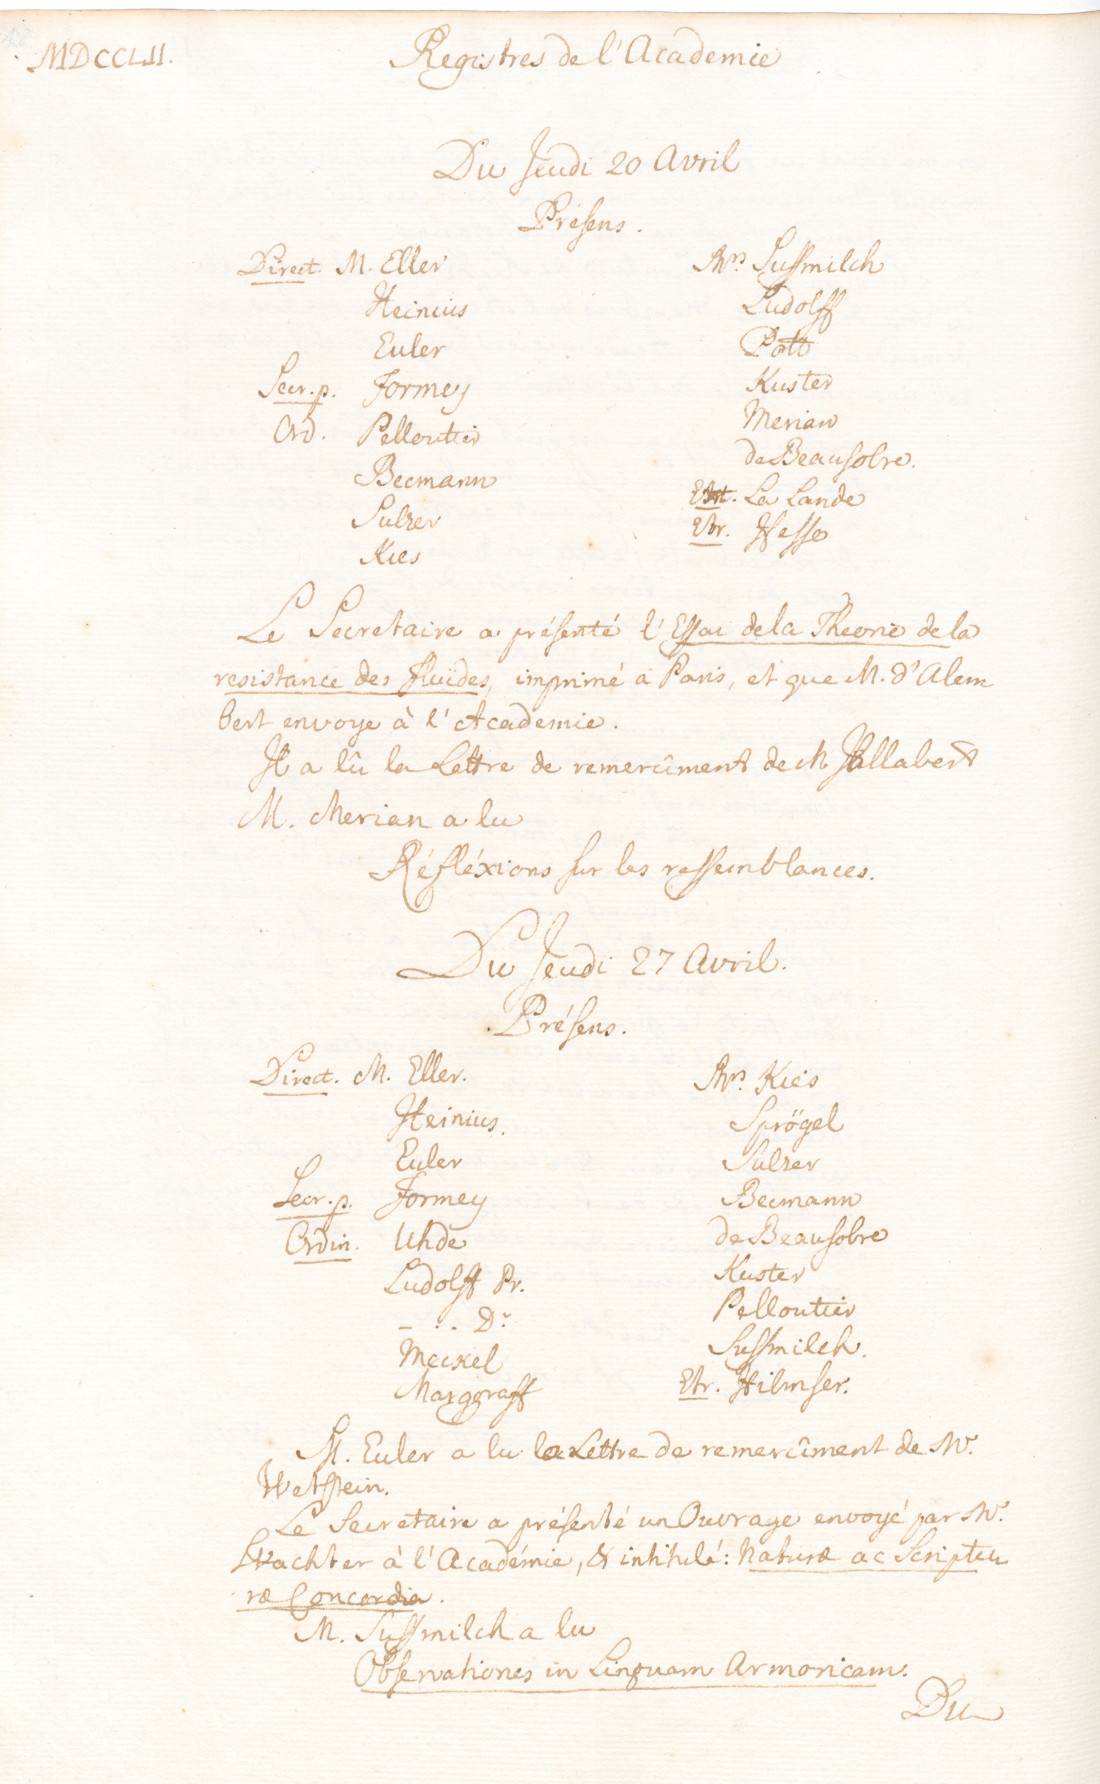 MDCCLII.
Registres de l'Academie
Du Jeudi 20 Avril
Présens.
Direct. M. Eller
Heinius
Euler
Secr. p. Formey
Ord. Pelloutier
Becmann
Sulzer
Kies
Mrs Sussmilch
Ludolff
Pott
Kuster
Merian
de Beausobre.
La Lande
Etr. Hesse
Le Secretaire a présenté l'Essai de la Theorie de la
resistance des fluides, imprimé à Paris, et que M. d'Alem
bert envoye à l'Academie.
Il a lû la Lettre de remercîment de M Jallabert
M. Merian a lu
Réfléxions sur les ressemblances.
Du Jeudi 27 Avril.
Présens.
Direct. M. Eller.
Heinius.
Euler
Secr. p. Formey
Ordin. Uhde
Ludolff Pr.
- . . Dr
Meckel
Marggraff
Mrs. Kies
Sprögel
Sulzer
Becmann
de Beausobre
Kuster
Pelloutier
Sussmilch.
Etr. Hilmser.
M. Euler a lu la Lettre de remercîment de Mr.
Wetstein.
Le Secretaire a présenté un Ouvrage envoyé par Mr.
Wachter à l'Académie, & intitulé: Naturæ ac Scriptu
ræ Concordia.
M. Sussmilch a lu
Observationes in Linguam Armoricam.
Du